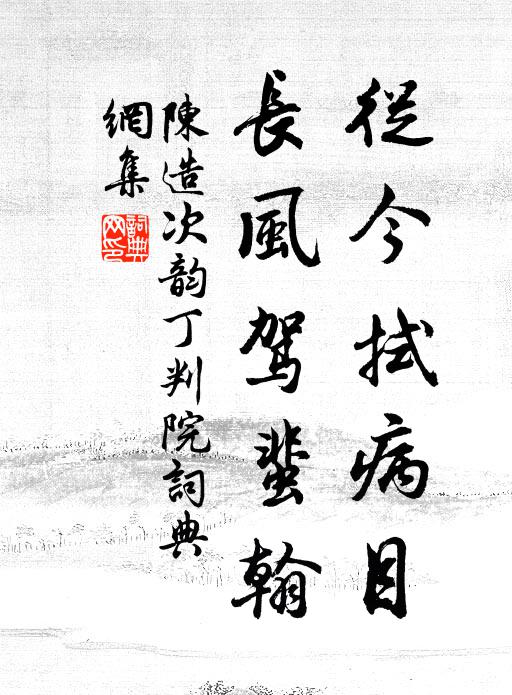 從今拭病目
長風駕蜚翰
陳造次韵丁判院詞典
網集
詞典
网印